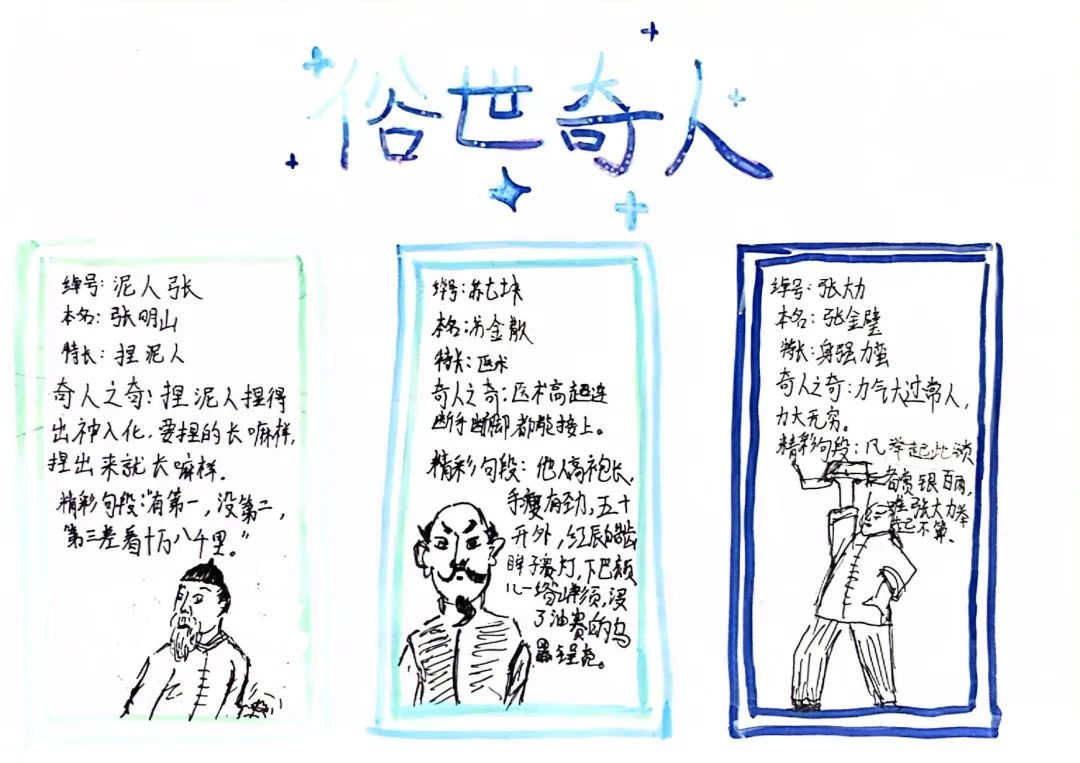 俗世奇人
绰号：泥人张
本名：张明山
特长：捏泥人
奇人之奇：捏泥人捏得
出神入化，要捏的长嘛样，
捏出来就长嘛样.
精彩句段："有第一，没第二，
第三差着十万八千里。"
绰号：苏七块
本名：苏金散
特长：医术
奇人之奇：医术高超连
断手断脚都能接上。
精彩句段：他人高袍长，
手瘦有劲，五十
开外，红唇皓齿
眸子赛灯，下巴颏
儿一绺山羊须，浸
了油赛的乌
黑锃亮。
绰号：张大力
本名：张金璧
特长：身强力蛮
奇人之奇：力气大过常人，
力大无穷。
精彩句段：凡举起此锁
者赏银百两，
唯张大力举
起不算。